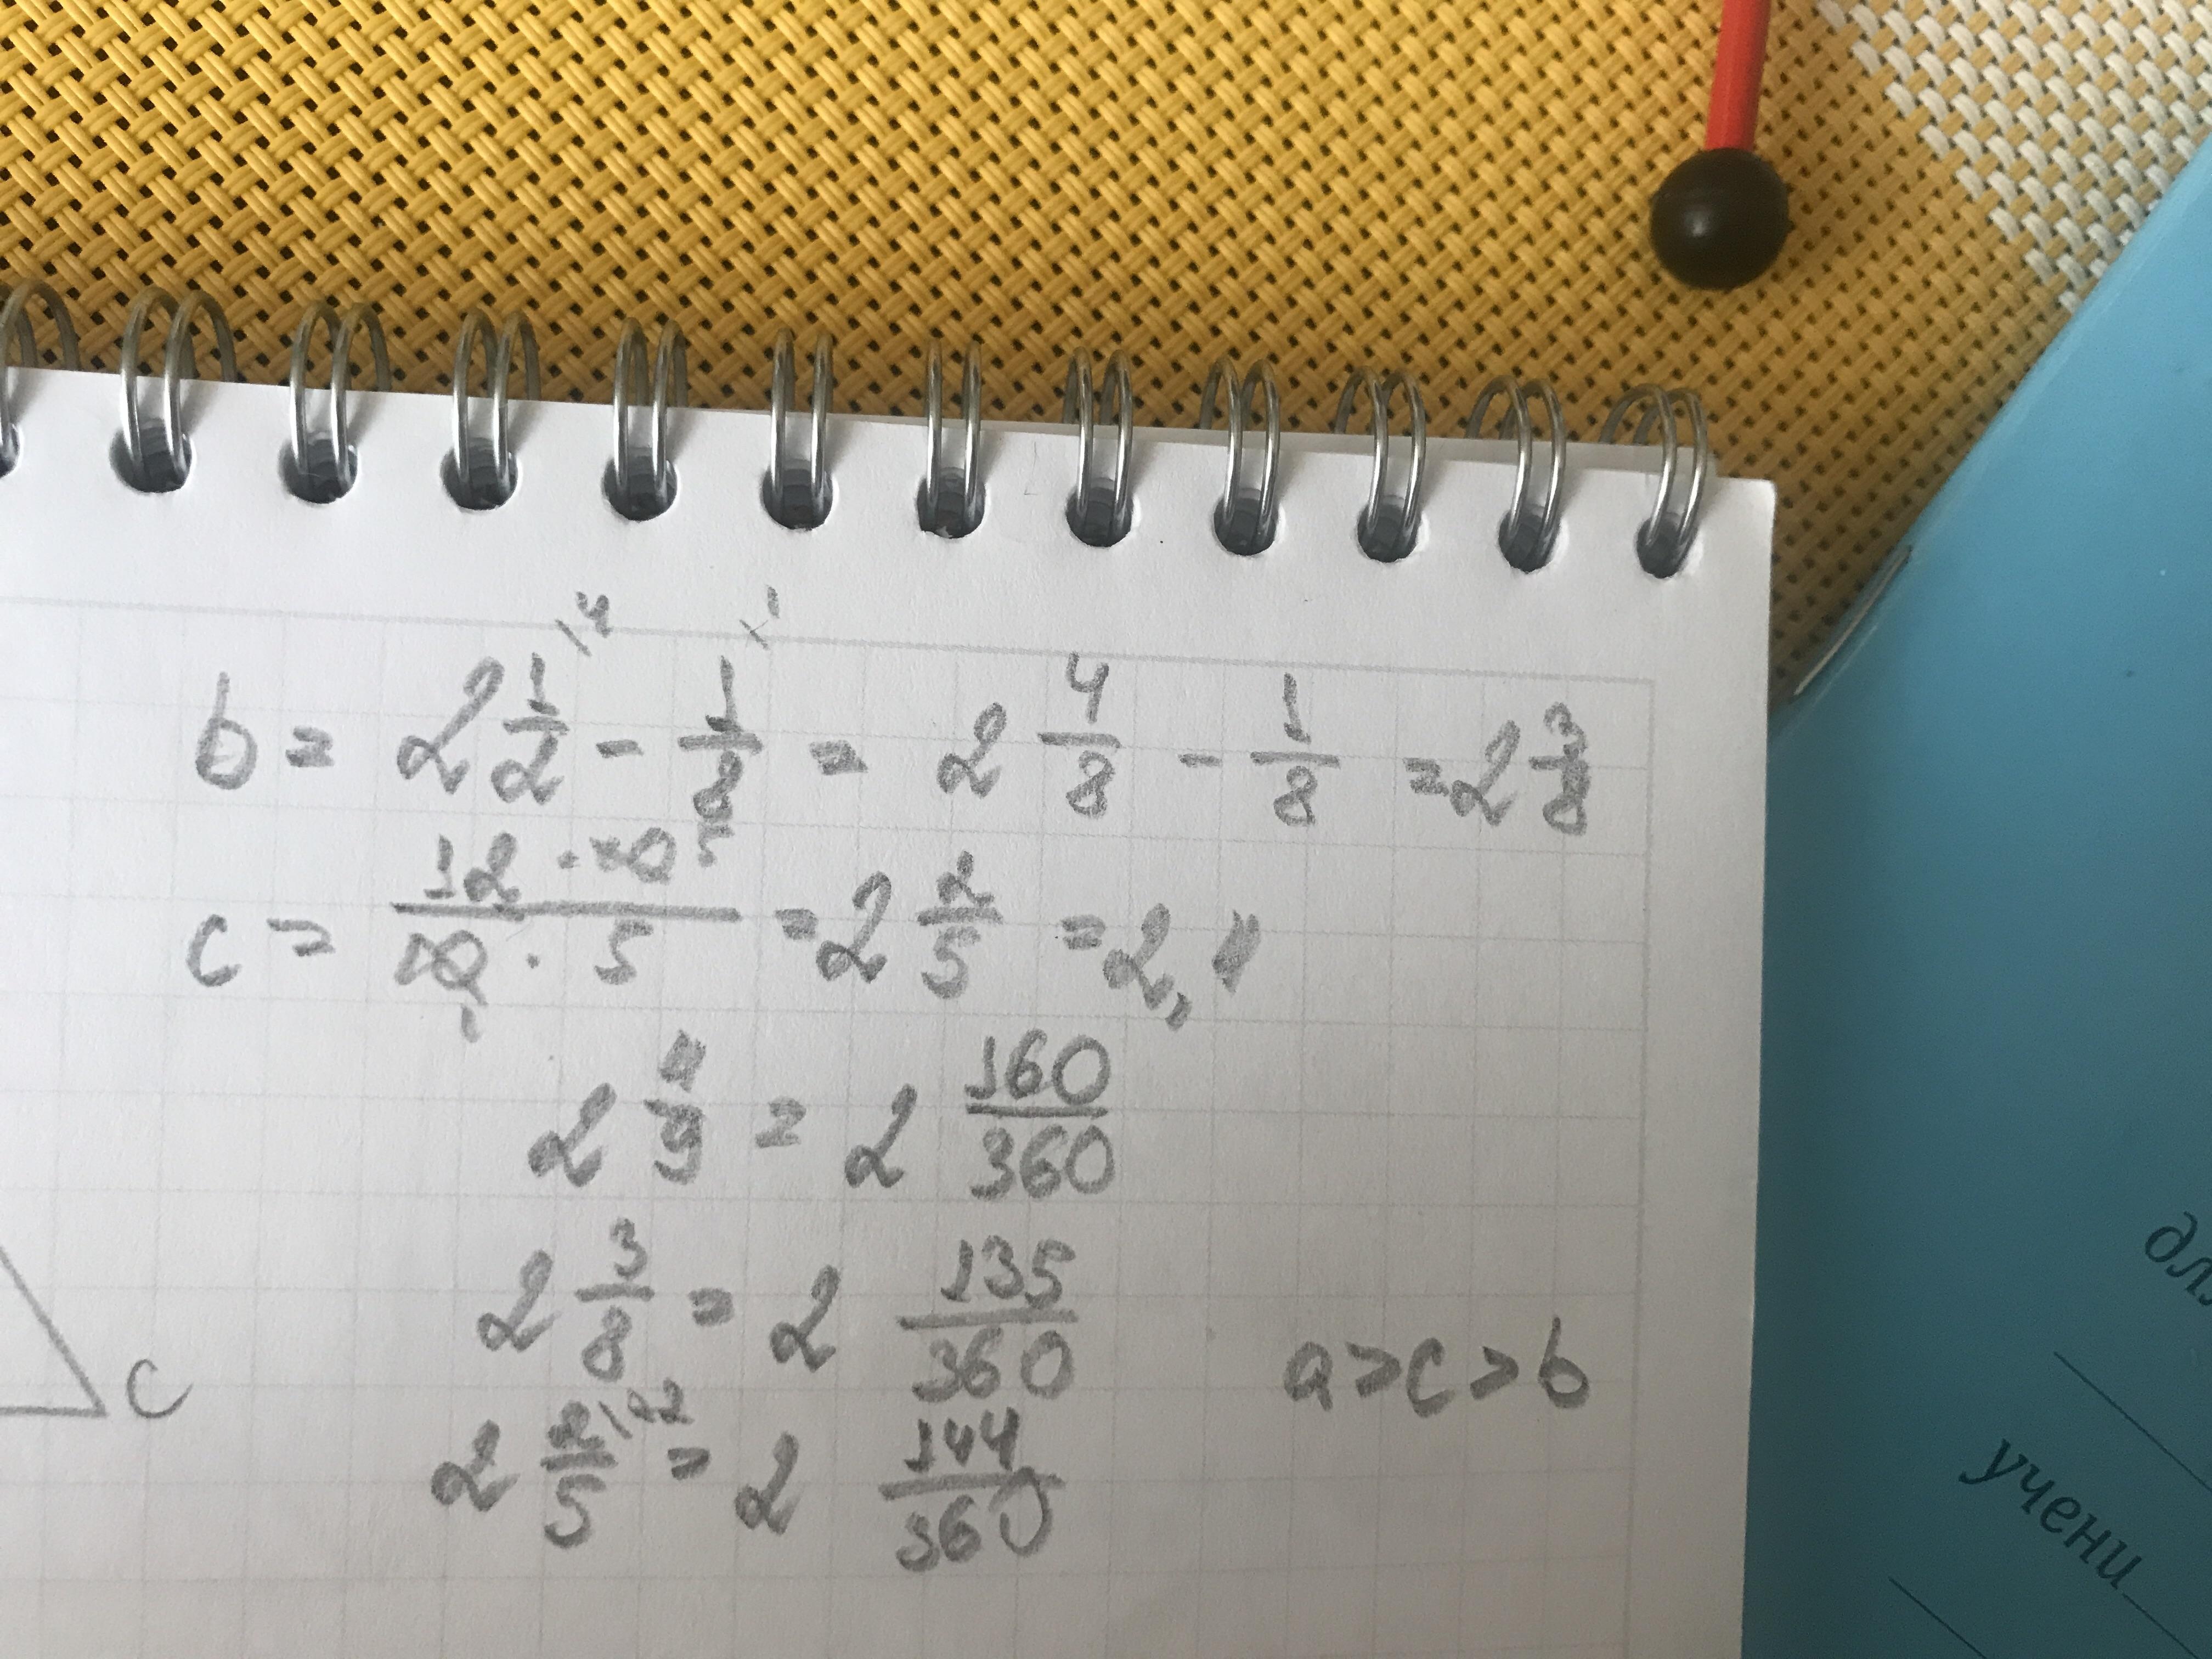 b = 2 1/2 |4 - 1/8 |1 = 2 4/8 - 1/8 = 2 3/8
c = 12 · / 10 · 5 = 2 2/5 = 2,4
1
2 4/9 = 2 160/360
2 3/8 = 2 135/360
a > c > b
2 2/5 = 2 144/360
c
учени